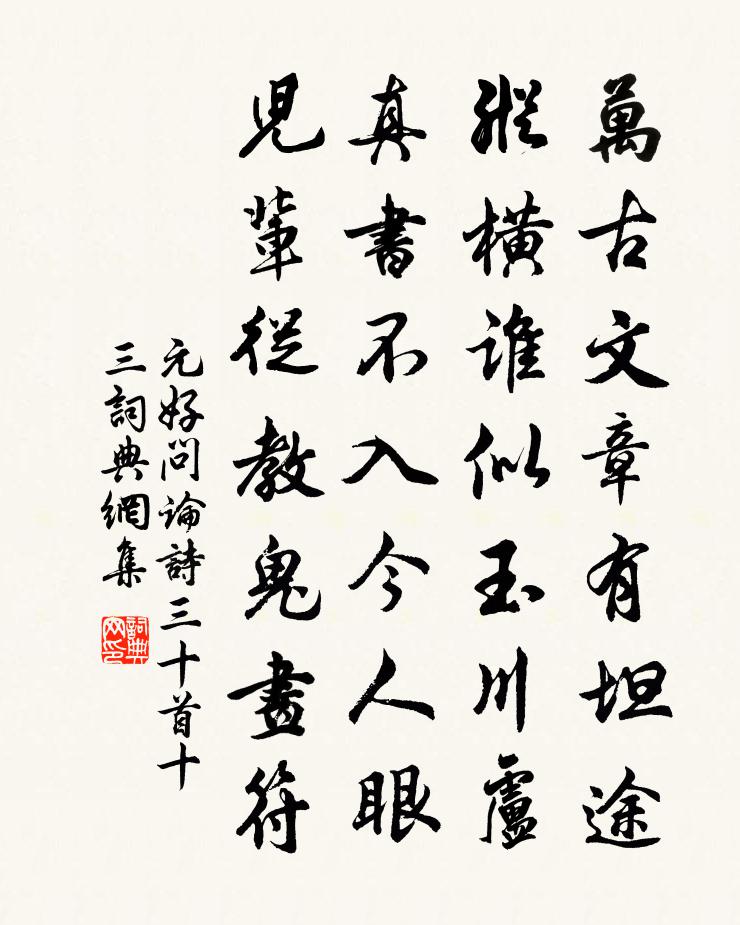 萬古文章有坦途
縱橫誰似玉川盧
真書不入今人眼
兒輩從教鬼畫符
元好问論詩三十首十
三詞典網集
詞典网印